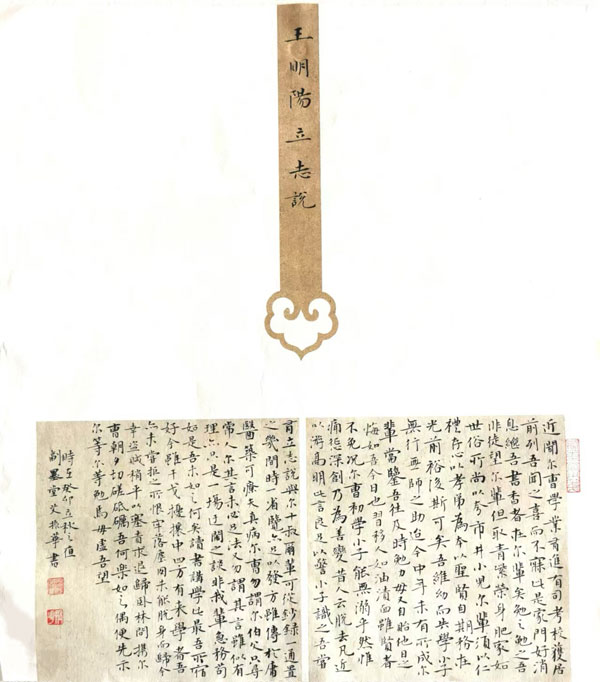 王明陽立志說
近聞尔曹學業有進有司考校獲居
前列吾聞之喜而不寐此是家門好消
息繼吾書香者在尔輩矣勉之勉之吾
非徒望尔輩但取青紫榮身肥家如
世俗所尚以夸市井小兒尔輩須以仁
禮存心以孝弟為本以聖賢自期務在
光前裕後斯可矣吾惟幼而失學
無行無師之助迨今中年未有所成尔
輩當鑒吾往及時勉力毋又自貽他日之
悔如吾今日也習移人如油漬面雖賢者
不免況尔曹初學小子能無溺乎然惟
痛懲深創乃為善變昔人云脱去凡近
以游高明此言良足以警小子識之吾嘗
有立志說與尔十叔爾輩可從鈔錄一通置
之幾間時一省覽亦足以發方雖傳于庸
醫藥可療夫真病尔曹勿謂尔伯父只尋
常人尔其言未必足法又勿謂其言雖似有
理亦只是一場迂闊之談非我輩急務苟
如是吾末如之何矣讀書講學此最吾所宿
好今雖干戈擾攘中四方有来學者吾
未嘗拒之所恨牢落塵网未能脱身而歸今
幸盜賊稍平以塞責求退歸卧林間攜尔
曹朝夕切磋砥礪吾何樂如之偶便先示
尔等尔等勉焉毋虚吾望
時在癸卯立秋之值
劍墨堂艾振華書